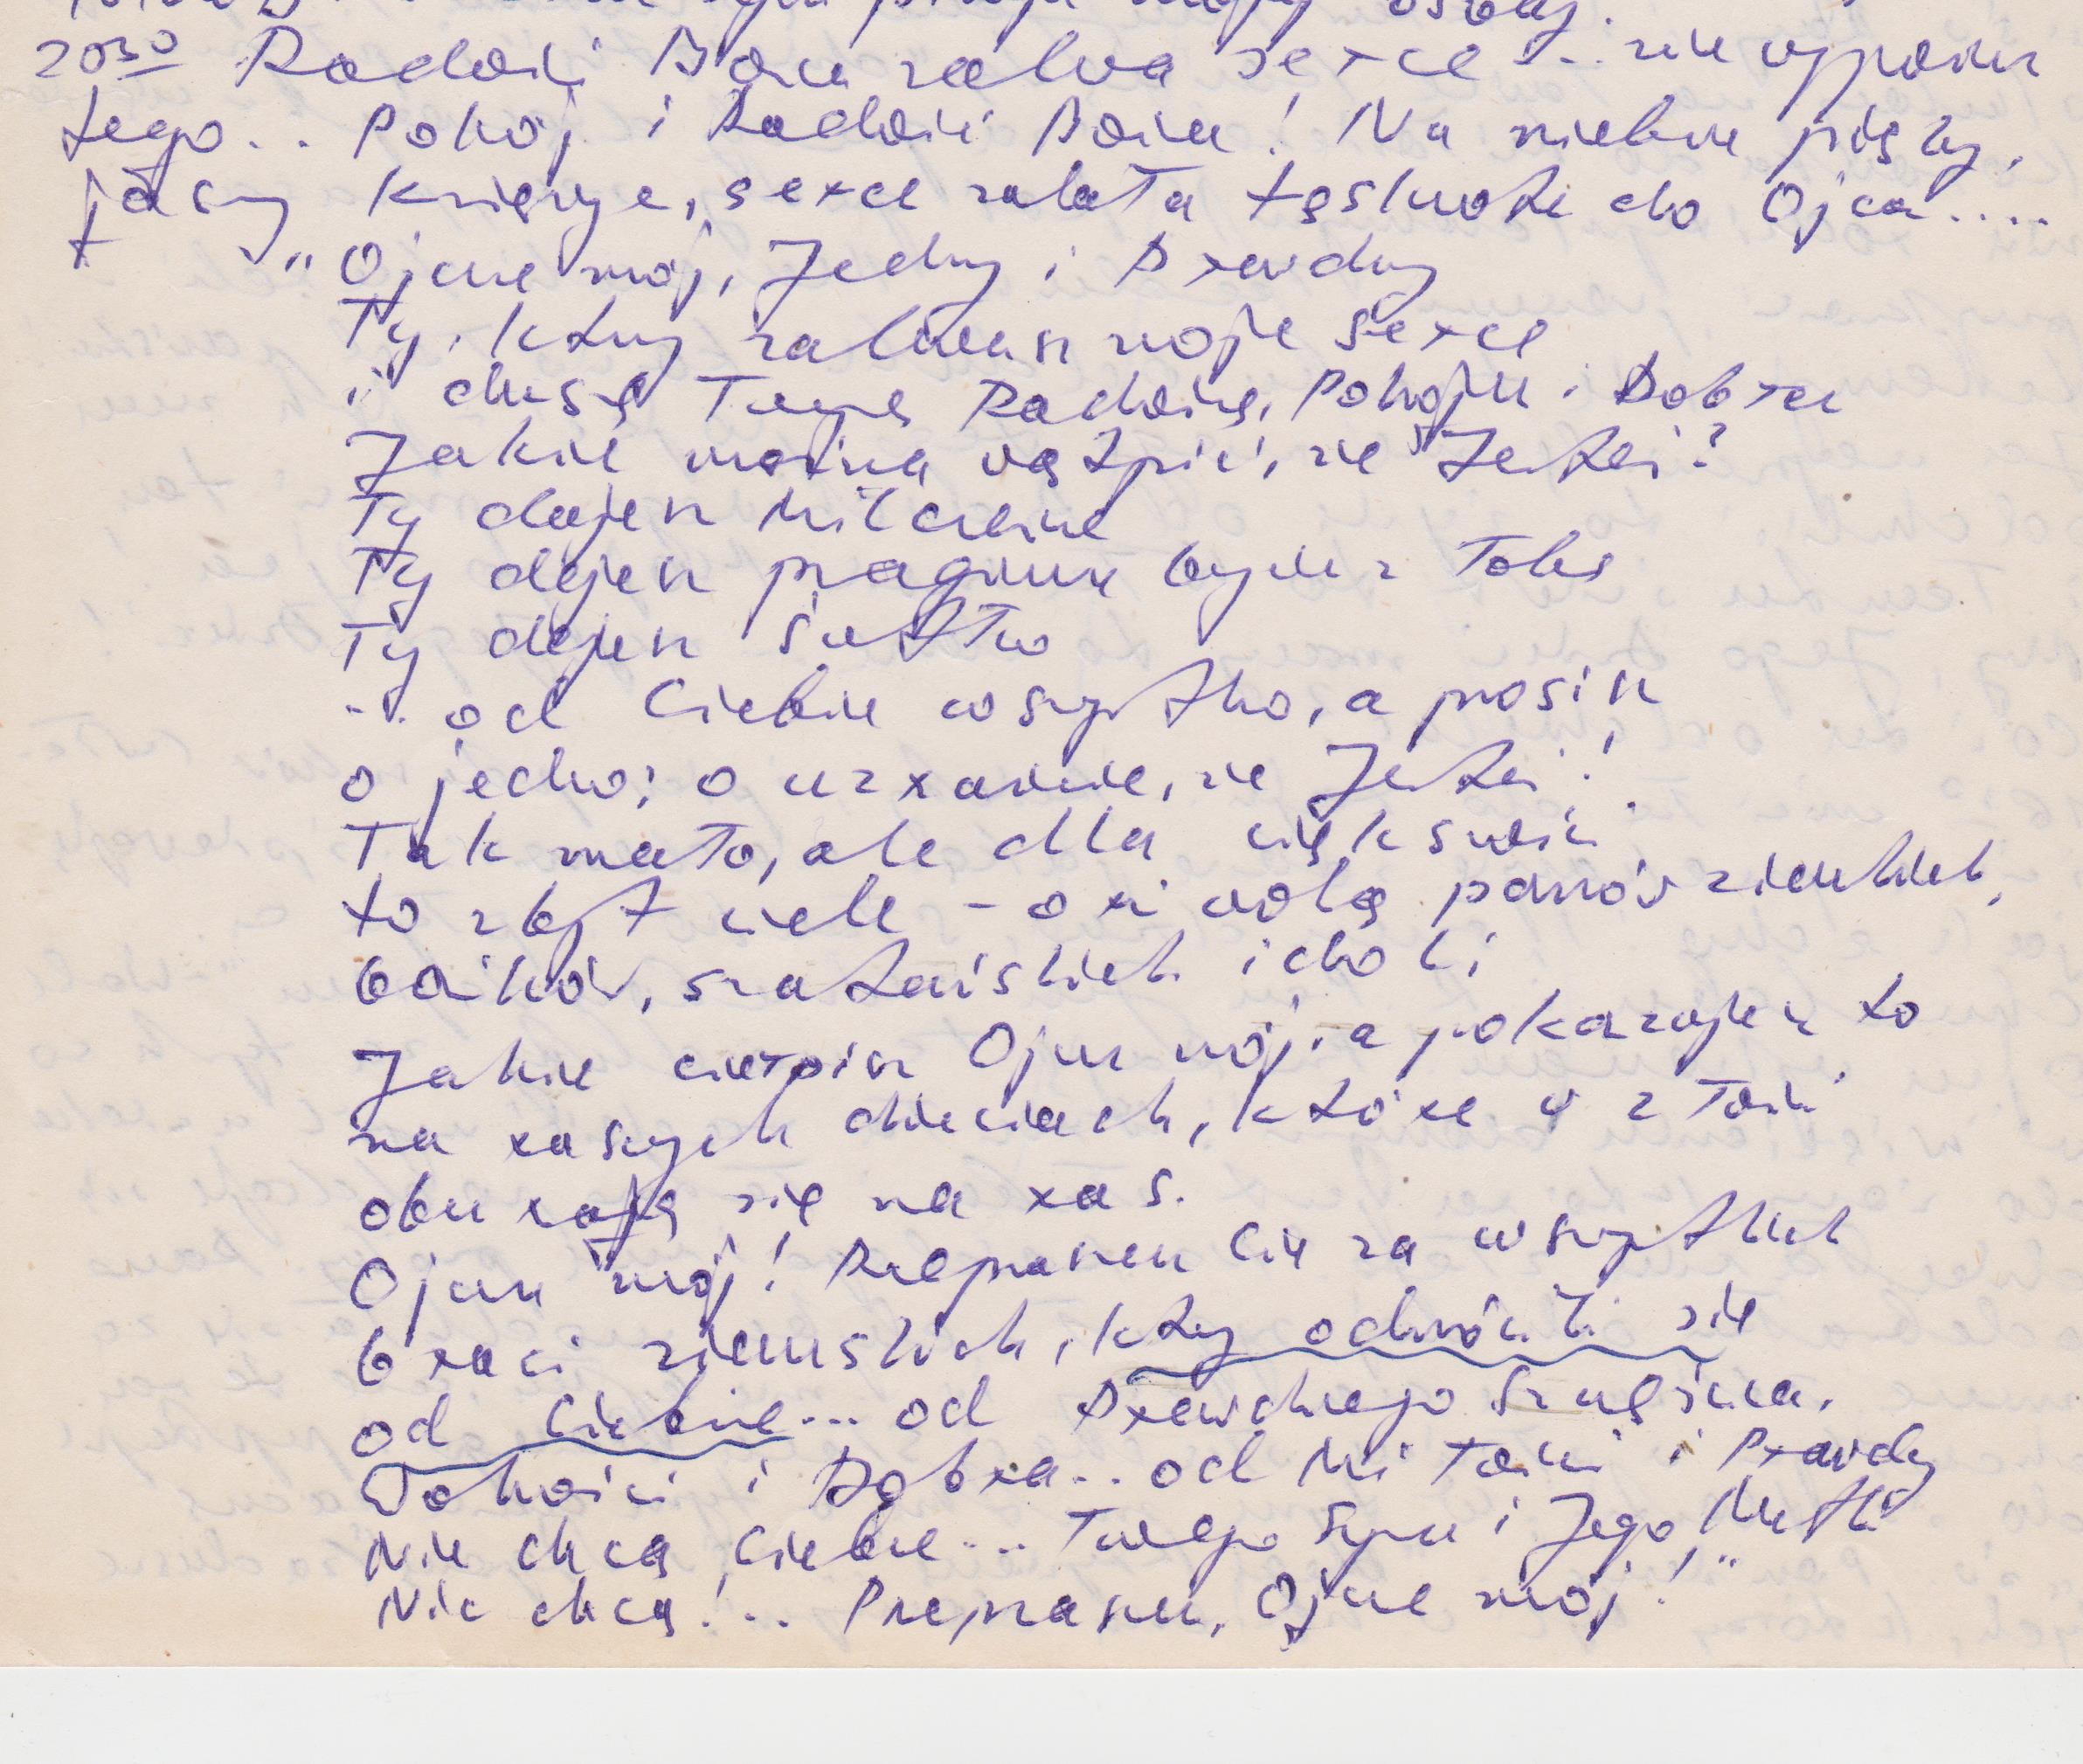 20³⁰ Radość Boża zalewa serce... nie wypowiem
tego.. Pokój i Radość Boża! Na niebie piszą,
jasny księżyc, serce zalała tęsknota do Ojca....
"Ojcze mój, Jedyny i Prawdziwy
Ty, który zalewasz moje serce
i duszę Twoją Radością, Pokojem i Dobrem
Jakże można wątpić, że Jesteś?
Ty dajesz Milczenie
Ty dajesz pragnienie bycia z Tobą
Ty dajesz światło
... od Ciebie wszystko, a prosisz
o jedno: o uznanie, że Jesteś!
Tak mało, ale dla większości
to zbyt wiele - oni wolą panów ziemskich,
bożków, szatańskich idoli
Jakże cierpisz Ojcze mój, a pokazujesz to
na naszych dzieciach, które w złości
oburzają się na nas.
Ojcze mój! Przepraszam Cię za wszystkich
braci ziemskich, którzy odwrócili się
od Ciebie... od Prawdziwego Szczęścia,
Wolności i Dobra... od Miłości i Prawdy
Nie chcą Ciebie... Twego Syna i Jego Matki
Nie chcą!.. Przepraszam, Ojcze mój!"